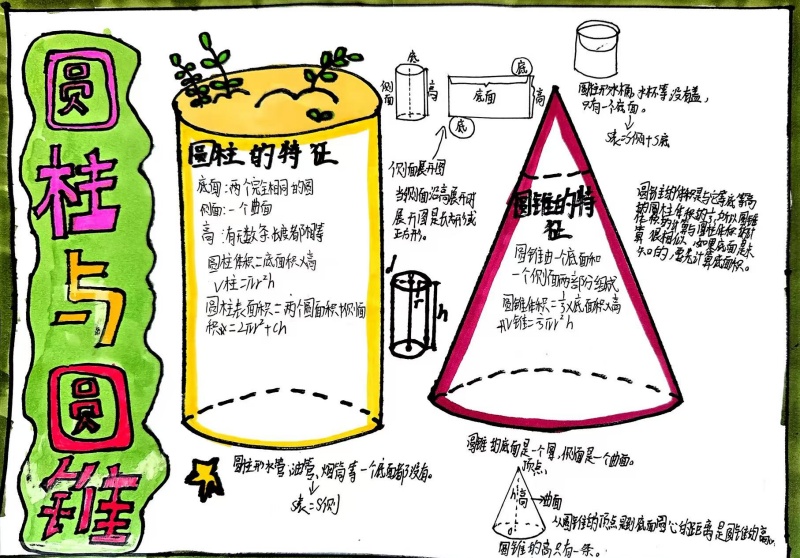 圆柱与圆锥
圆柱的特征
底面:两个完全相同的圆
侧面:一个曲面
高:有无数条,长度都相等
圆柱体积=底面积×高
V柱=πr²h
圆柱表面积=两个圆面积+侧面
积=2πr²+ch
圆柱形水管,油管,烟筒等一个底面都没有。
S表=S侧
底
侧面
高
底
底面
高
底
侧面展开图
当侧面沿高展开时
展开图是长方形或
正方形。
r
h
圆柱形水桶,水杯等没有盖,
只有一个底面。
S表=S侧+S底
圆锥的特
征
圆锥由一个底面和
一个侧面两部分组成
圆锥体积=⅓×底面积×高
V锥=⅓πr²h
圆锥的体积是与它等底等高
的圆柱体积的⅓,所以圆锥
体积的计算与圆柱体积的计
算很相似,如果底面是未
知的,要先计算底面积。
圆锥的底面是一个圆,侧面是一个曲面。
顶点
h高
曲面
从圆锥的顶点到底面圆心的距离是圆锥的高。
圆锥的高只有一条。